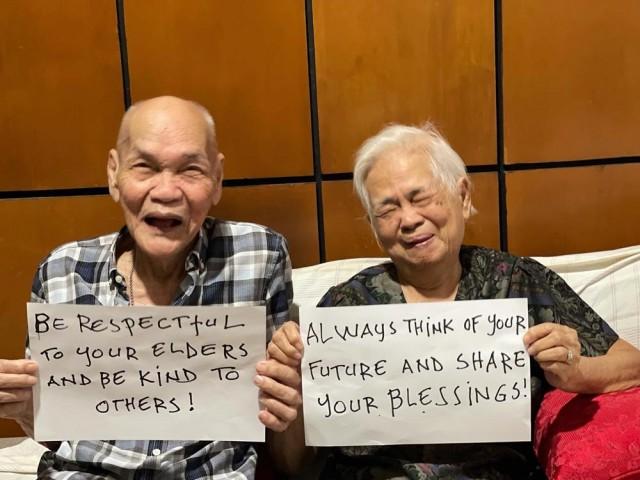 BE RESPECTfUL
TO YOUR ELDERS
AND BE KIND TO
OTHERS!
ALWAYS THINK OF YOUR
FUTURE AND SHARE
YOUR BLESSINGS!